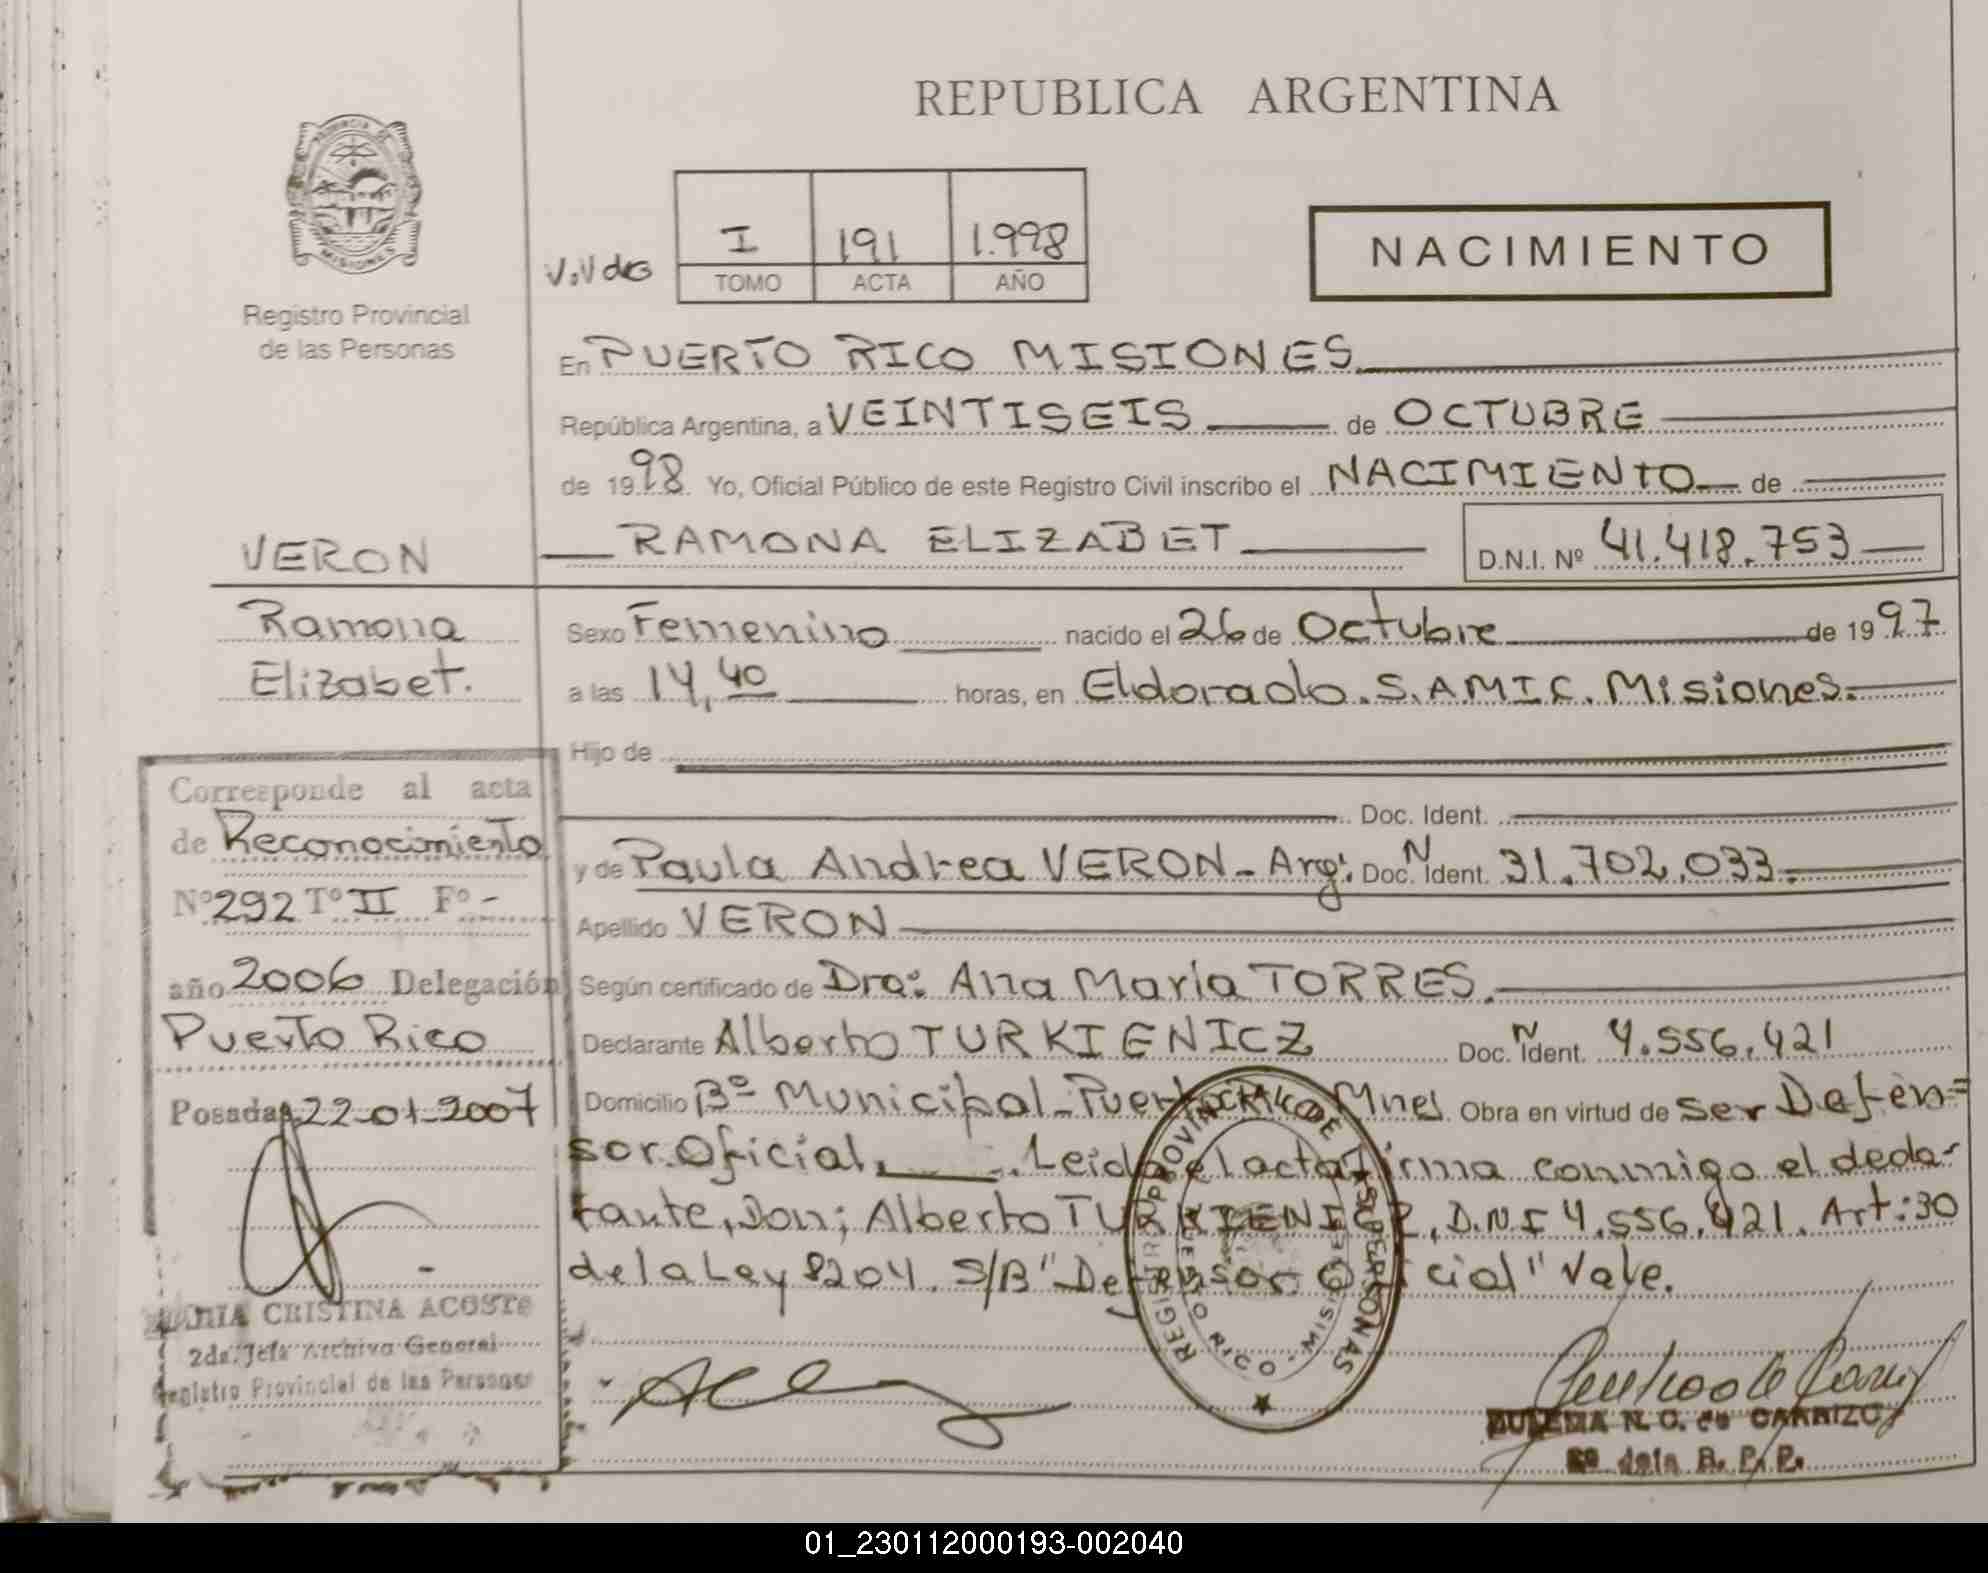 REPUBLICA ARGENTINA
PROVINCIA DE
MISIONES
Registro Provincial
de las Personas
I 191 1.998
TOMO ACTA AÑO
NACIMIENTO
En PUERTO RICO MISIONES
República Argentina, a VEINTISEIS de OCTUBRE
de 1998. Yo, Oficial Público de este Registro Civil inscribo el NACIMIENTO de
RAMONA ELIZABET D.N.I. Nº 41.418.753
VERON
Ramona
Elizabet.
Sexo Femenino nacido el 26 de Octubre de 1997
a las 14,40 horas, en Eldorado. S.AMIC. Misiones.
Hijo de
Doc. Ident.
y de Paula Andrea VERON - Arg: Doc. N Ident. 31.702.033.
Apellido VERON
Según certificado de Dra: Ana María TORRES.
Declarante Alberto TURKIENICZ Doc. N Ident. 4.556.421
Domicilio Bº Municipal - Puerto Rico Mnes. Obra en virtud de ser Defen=
sor Oficial. Leida el acta firma conmigo el decla-
rante, Don; Alberto TURKIENICZ, D.N.I 4.556.421. Art: 30
de la Ley 8204. S/B "Defensor Oficial" Vale.
Corresponde al acta
de Reconocimiento
Nº 292 Tº II Fº -
año 2006 Delegación
Puerto Rico
Posadas, 22-01-2007
MARIA CRISTINA ACOSTA
2da. Jefa Archivo General
Registro Provincial de las Personas
REGISTRO PROVINCIAL DE LAS PERSONAS
PUERTO RICO - MISIONES
ZULEMA N. C. de CARRIZO
01_230112000193-002040